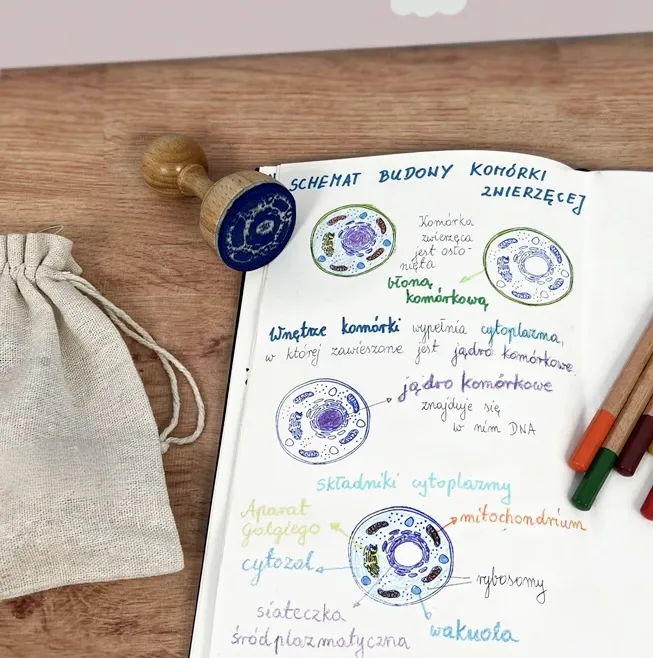 SCHEMAT BUDOWY KOMÓRKI
ZWIERZĘCEJ
Komórka
zwierzęca
jest osło-
nięta
błoną
komórkową
Wnętrze komórki wypełnia cytoplazma,
w której zawieszone jest jądro komórkowe.
jądro komórkowe
znajduje się
w nim DNA
składniki cytoplazmy
Aparat
Golgiego
mitochondrium
cytozol
rybosomy
siateczka
śródplazmatyczna
wakuola